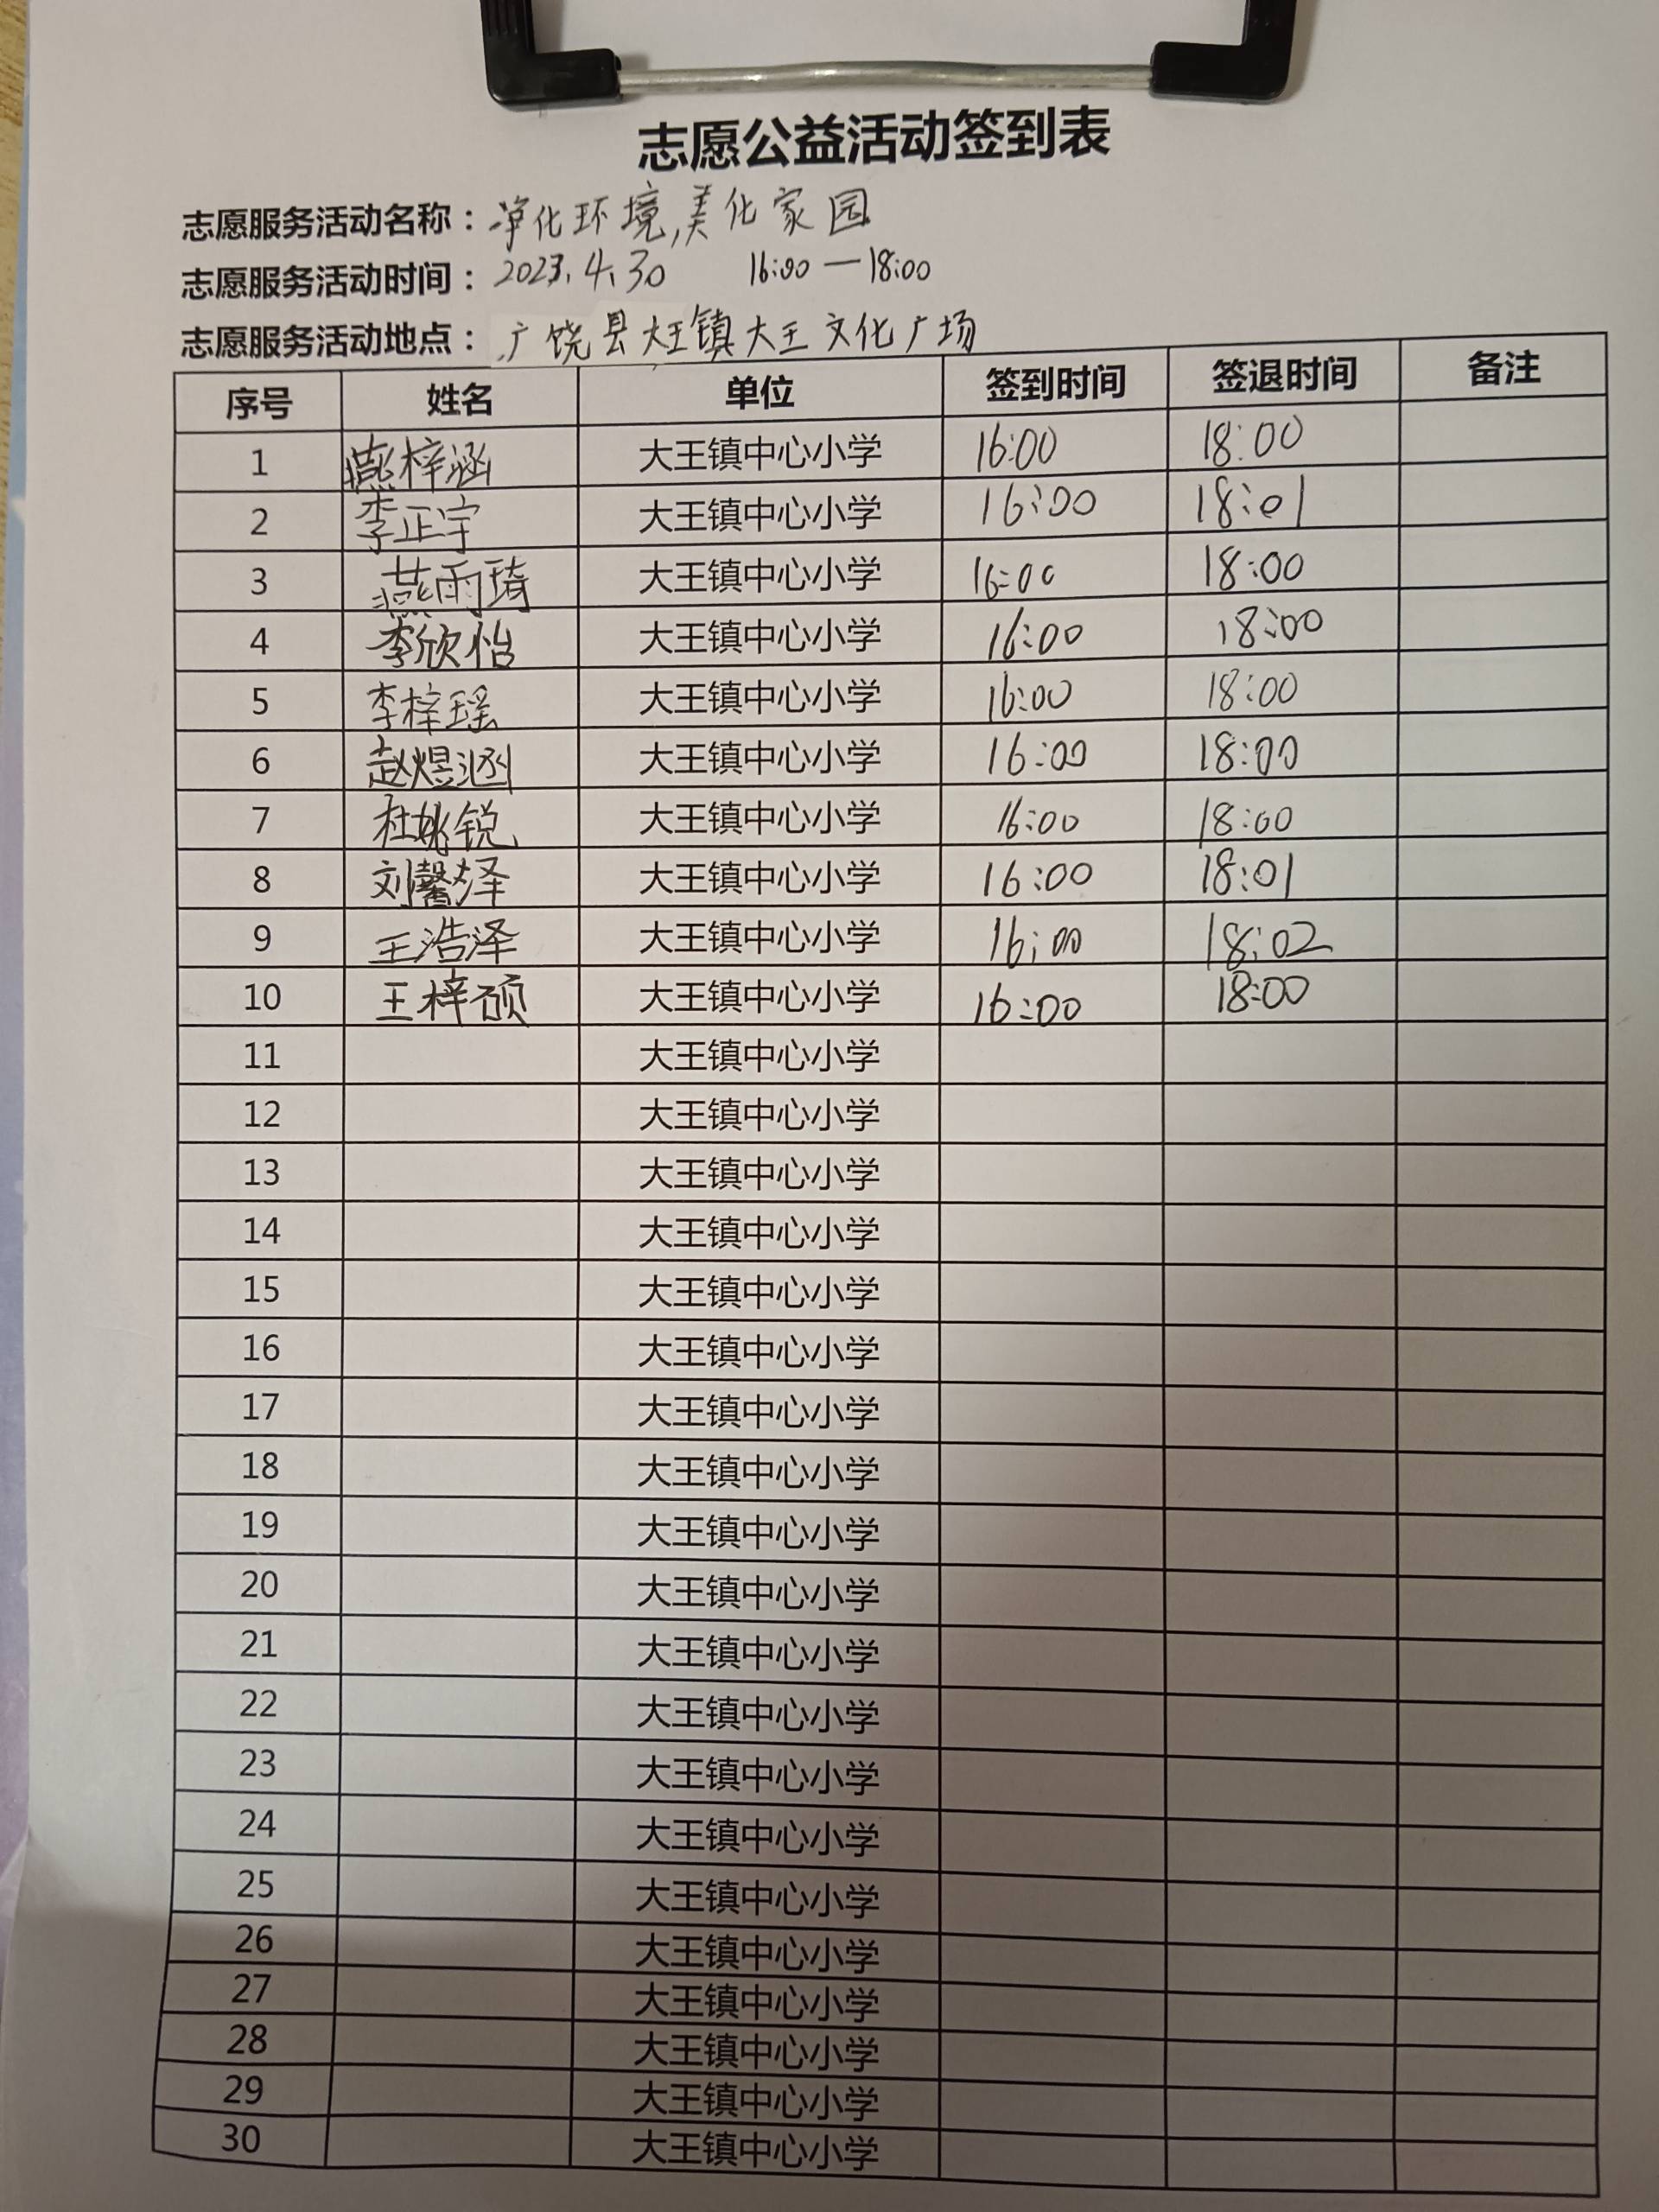 志愿公益活动签到表
志愿服务活动名称：净化环境,美化家园
志愿服务活动时间：2023.4.30 16:00—18:00
志愿服务活动地点：广饶县大王镇大王文化广场
序号 姓名 单位 签到时间 签退时间 备注
1 燕梓涵 大王镇中心小学 16:00 18:00
2 李正宇 大王镇中心小学 16:00 18:01
3 燕雨琦 大王镇中心小学 16:00 18:00
4 李欣怡 大王镇中心小学 16:00 18:00
5 李梓瑶 大王镇中心小学 16:00 18:00
6 赵煜涵 大王镇中心小学 16:00 18:00
7 杜姚锐 大王镇中心小学 16:00 18:00
8 刘馨泽 大王镇中心小学 16:00 18:01
9 王浩泽 大王镇中心小学 16:00 18:02
10 王梓硕 大王镇中心小学 16:00 18:00
11 大王镇中心小学
12 大王镇中心小学
13 大王镇中心小学
14 大王镇中心小学
15 大王镇中心小学
16 大王镇中心小学
17 大王镇中心小学
18 大王镇中心小学
19 大王镇中心小学
20 大王镇中心小学
21 大王镇中心小学
22 大王镇中心小学
23 大王镇中心小学
24 大王镇中心小学
25 大王镇中心小学
26 大王镇中心小学
27 大王镇中心小学
28 大王镇中心小学
29 大王镇中心小学
30 大王镇中心小学